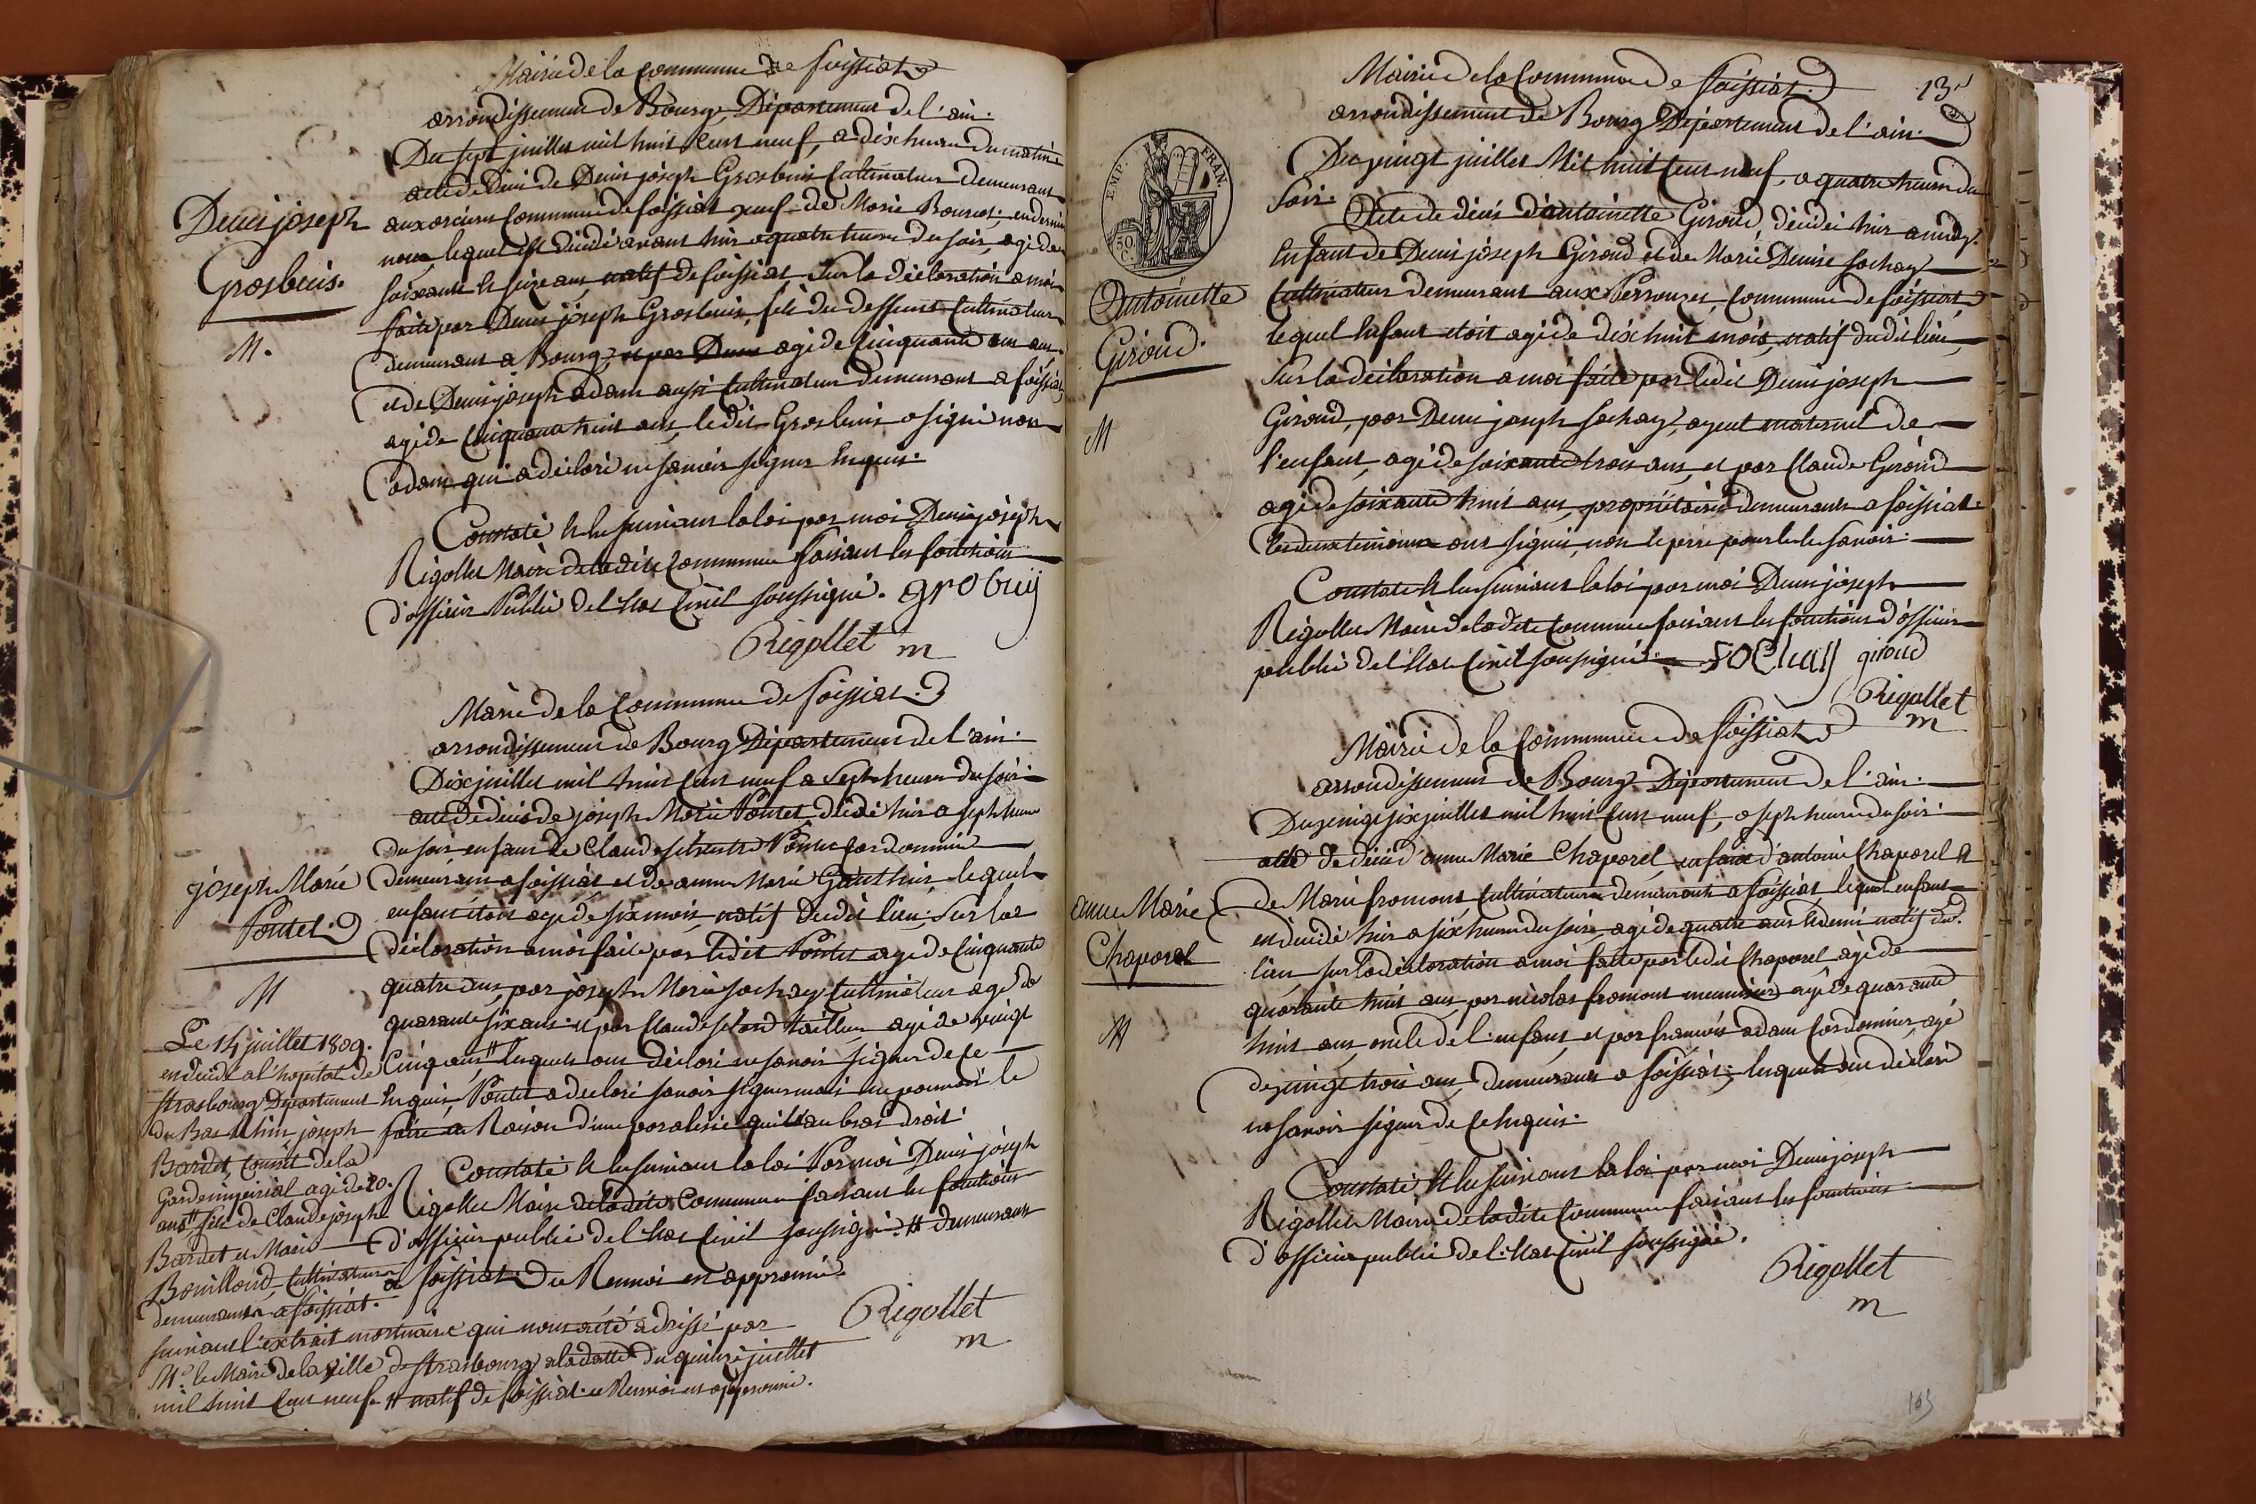 Mairie de la Commune de foissiat
arrondissement de Bourg, Département de l'ain.
Du sept juillet mil huit Cent neuf, a dix heures du matin
acte de décès de Denis joseph Grosbuis Cultivateur demeurant
Denis joseph
Grosbuis.
M.
commune de foissiat veuf de Marie en dernier
lequel est décédé avant hier a quatre heures du soir, agé de
soixante et seize ans, natif de foissiat, Sur la déclaration a moi
faite par Denis joseph Grosbuis, fils du dessus Cultivateur
demeurant a Bourg, agé de Cinquante un ans
et de Denis joseph adam aussi Cultivateur demeurant a foissiat
agé de Cinquante huit ans, ledit Grosbuis a signé non
adam qui a déclaré ne savoir signer Enquis.
Constaté et lu suivant la loi par moi Denis joseph
Rigollet Maire de la dite Commune faisant les fonctions
d'officier Public de l'Etat Civil soussigné. grobuij
Rigollet m
Mairie de la Commune de foissiat.
arrondissement de Bourg Département de l'ain.
Dix juillet mil huit Cent neuf a Sept heures du soir
acte de décès de joseph Marie Pontet, décédé hier a sept heures
du soir, enfant de Claude Pontet Cordonnier
joseph Marie
Pontet.
M
demeurant a foissiat et de anne Marie Gauthier, lequel
enfant étoit agé de six mois, natif dudit lieu; Sur la
déclaration a moi faite par ledit Pontet agé de Cinquante
quatre ans, par joseph Marie sochay Cultivateur agé de
quarante six ans. et par Claude tailleur agé de vingt
Cinq ans # lesquels ont déclaré ne savoir signer de ce
Enquis, Pontet a déclaré savoir signer mais ne pouvoir le
faire a Raison d'une paralisie qu'il a au bras droit.
Constaté et lu suivant la loi Par moi Denis joseph
Rigollet Maire de ladite Commune faisant les fonctions
d'officier public de l'Etat Civil soussigné. # demeurant
a foissiat. du Renvoi en approuvé.
Rigollet
m
Le 14 juillet 1809.
est décédé a l'hopital de
strasbourg Département
du Bas Rhin, joseph
Bardet, Conscrit de la
Garde impérial agé de 20.
ans # fils de Claude joseph
Bardet et Marie
Bouilloud, Cultivateurs
demeurants a foissiat.
suivant l'extrait mortuaire qui nous a été adressé par
Mr. le Maire de la ville de strasbourg a la datte du quinze juillet
mil huit Cent neuf. # natif de foissiat. ce Renvoi est approuvé.
Mairie de la Commune de foissiat.
arrondissement de Bourg Département de l'ain.
Du vingt juillet Mil huit Cent neuf, a quatre heures du
soir.
IMP. FRAN.
50
C.
Acte de décès d'antoinette Giroud, décédée hier a midy.
Enfant de Denis joseph Giroud et de Marie Denise sochay
Antoinette
Giroud.
M
Cultivateurs demeurant aux Perrouzes, Commune de foissiat,
lequel Enfant étoit agé de dix huit mois, natif dudit lieu,
Sur la déclaration a moi faite par ledit Denis joseph
Giroud, par Denis joseph sochay, ayeul maternel de
l'enfant, agé de soixante trois ans, et par Claude Giroud
agé de soixante huit ans, propriétaires demeurants a foissiat.
les deux témoins ont signés, non le père pour ne le savoir.
Constaté et lu suivant la loi par moi Denis joseph
Rigollet Maire de la dite Commune faisant les fonctions d'officier
public de l'Etat Civil soussigné. sochay giroud
Rigollet
m
Mairie de la Commune de foissiat
arrondissement de Bourg Département de l'ain.
Du vingt six juillet mil huit Cent neuf, a sept heures du soir
acte de décès d'anne Marie Chaparel, enfant d'antoine Chaparel et
anne Marie
Chaparel
M
de Marie fromont, Cultivateurs demeurants a foissiat, lequel enfant
est décédé hier a six heures du soir, agé de quatre ans et demi natif dud.
lieu, sur la déclaration a moi faite par ledit Chaparel, agé de
quarante huit ans, par nicolas fromont meunier agé de quarante
huit ans, oncle de l'enfant, et par francois adam Cordonnier, agé
de vingt trois ans, demeurants a foissiat, lesquels ont déclaré
ne savoir signer de ce Enquis.
Constaté, Et lu suivant la loi par moi Denis joseph
Rigollet Maire de ladite Commune faisant les fonctions
d'officier public de l'Etat Civil soussigné.
Rigollet
m
103